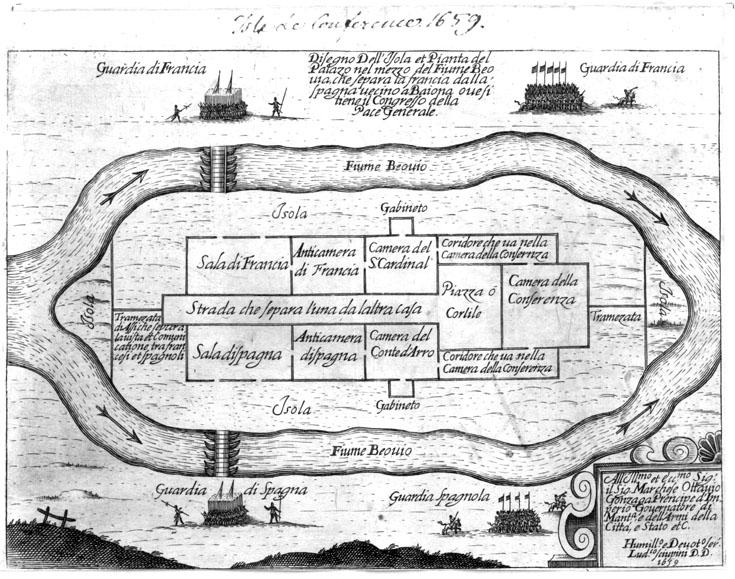 Isle de Conference 1659.
Guardia di Francia
Disegno Dell'Isola et Pianta del
Palazo nel mezo del Fiume Beo
uia, che separa la francia dalla
spagna uecino a Baiona oue si
tiene il Congresso della
Pace Generale.
Guardia di Francia
Fiume Beouio
Isola
Gabineto
Sala di Francia
Anticamera
di Francia
Camera del
S. Cardinal
Coridore che ua nella
Camera della Conferenza
Piazza ó
Cortile
Camera della
Conferenza
Isola
Strada che separa l'una da l'altra casa
Tramezata
di Assi che separa
la uista et Comuni
catione tra fran
cesi et spagnoli
Tramezata
Isola
Sala di spagna
Anticamera
di spagna
Camera del
Conte d'Arro
Coridore che ua nella
Camera della Conferenza
Isola
Gabineto
Fiume Beouio
Guardia di Spagna
Guardia Spagnola
All' Illmo et ecc.mo Sig.
il Sig. Marchese Ottauio
Gonzaga Prencipe d'Im
perio Gouernatore di
Mant.a e dell'Armi della
Citta, e Stato etc.
Humill.o e Deuot.o ser.
Lud.co D.D.
1659